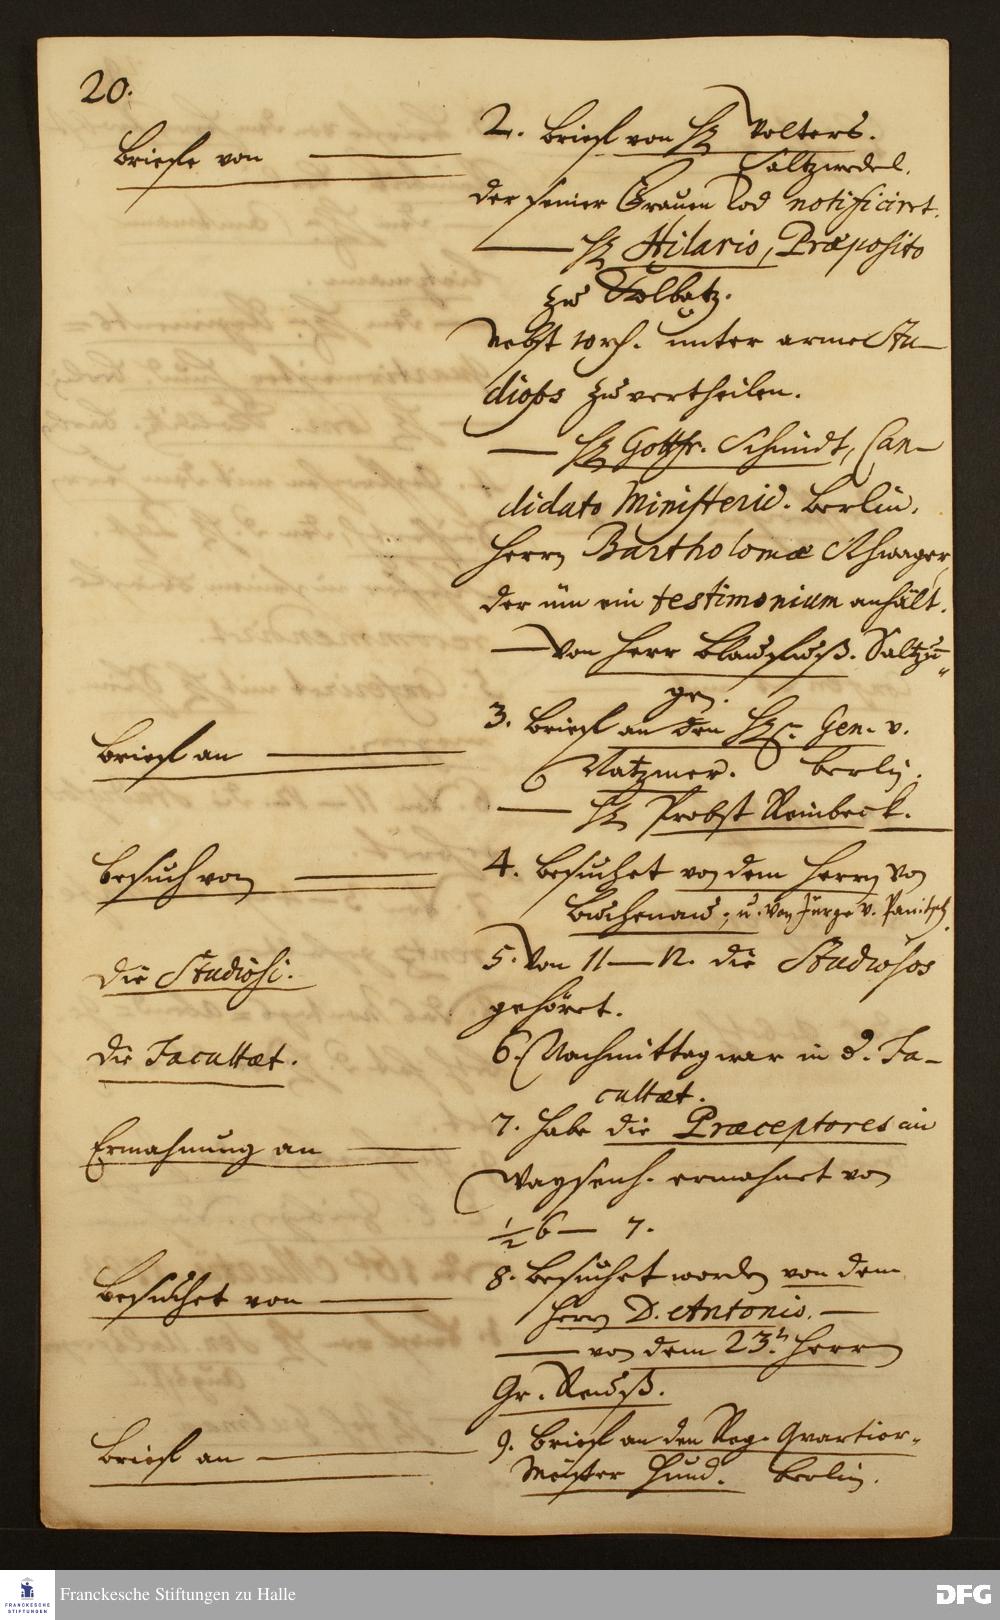 20.
Briefe von
2. Brief von H. Volters.
Saltzwedel.
der seiner Frauen Tod notificiret.
H. Hilario, Præposito
zu Colbatz.
Nebst 10 rh. unter arme Stu-
diosos zu vertheilen.
H. Gottfr. Schmidt, Can-
didato Ministerii. Berlin.
Herrn Bartholomæ Schwager,
der um ein testimonium anhält.
Von Herr Blaufuß. Saltzu-
gen.
Brief an
3. Brief an den H. Gen. v.
Natzmer. Berlin.
H. Probst Reinbeck.
Besuch von
4. Besuchet von dem Herrn von
Buchenau; u. von Jürge v. Panitsch.
Die Studiosi.
5. Von 11 – 12. die Studiosos
gehöret.
Die Facultæt.
6. Nachmittag war in d. Fa-
cultæt.
Ermahnung an
7. Habe die Præceptores im
Waysenh. ermahnet von
1/2 6 – 7.
Besuchet von
8. Besuchet worden von dem
Herrn D. Antonio.
von dem 23t. Herrn
Gr. Reuß.
Brief an
9. Brief an den Reg. Quartier-
Meister Hund. Berlin.
Franckesche Stiftungen zu Halle
FRANCKESCHE
STIFTUNGEN
DFG